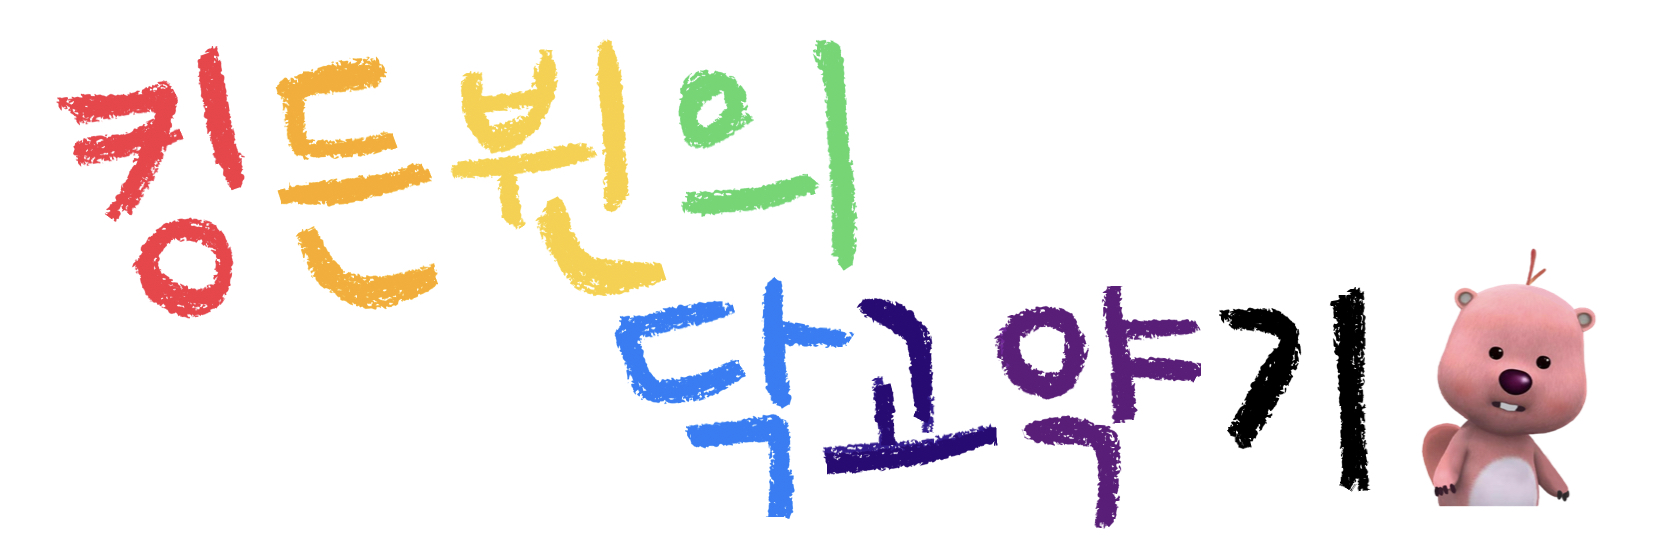 킹든뷘의
닥고약기